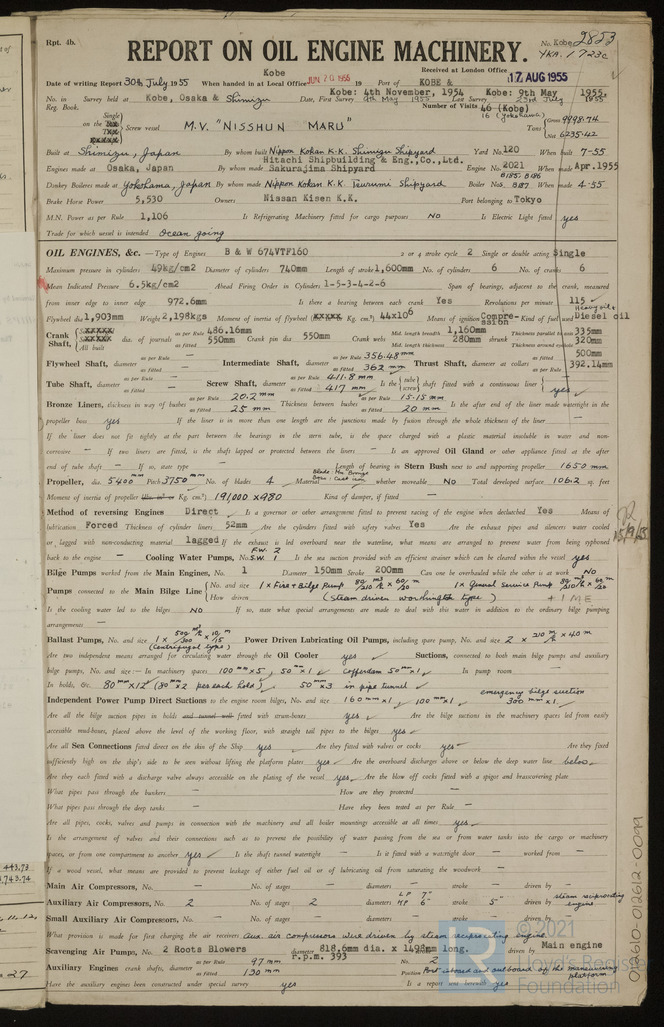 Rpt. 4b.
No. Kobe 2853
YKA. 1723c
REPORT ON OIL ENGINE MACHINERY.
Kobe
Received at London Office 17 AUG 1955
Date of writing Report 30th July 1955 When handed in at Local Office JUN 20 1955 19 Port of KOBE &
No. in Reg. Book. Survey held at Kobe, Osaka & Shimizu Date, First Survey Kobe: 4th November, 1954 Last Survey Kobe: 9th May 1955.
9th May 1955 23rd July 1955
Number of Visits 46 (Kobe)
16 (Yokohama)
on the Single Screw vessel M.V. "NISSHUN MARU" Tons Gross 9998.74
Net 6235.42
Built at Shimizu, Japan By whom built Nippon Kokan K.K. Shimizu Shipyard Yard No. 120 When built 7-55
Engines made at Osaka, Japan By whom made Hitachi Shipbuilding & Eng., Co., Ltd. Sakurajima Shipyard Engine No. 2021 When made Apr. 1955
Donkey Boilers made at Yokohama, Japan By whom made Nippon Kokan K.K. Tsurumi Shipyard Boiler Nos. B185, B186 B87 When made 4-55
Brake Horse Power 5,530 Owners Nissan Kisen K.K. Port belonging to Tokyo
M.N. Power as per Rule 1,106 Is Refrigerating Machinery fitted for cargo purposes NO Is Electric Light fitted yes
Trade for which vessel is intended Ocean going
OIL ENGINES, &c. — Type of Engines B & W 674VTF160 2 or 4 stroke cycle 2 Single or double acting Single
Maximum pressure in cylinders 49kg/cm2 Diameter of cylinders 740mm Length of stroke 1,600mm No. of cylinders 6 No. of cranks 6
Mean Indicated Pressure 6.5kg/cm2 Ahead Firing Order in Cylinders 1-5-3-4-2-6 Span of bearings, adjacent to the crank, measured
from inner edge to inner edge 972.6mm Is there a bearing between each crank Yes Revolutions per minute 115
Flywheel dia. 1,903mm Weight 2,198kgs Moment of inertia of flywheel Kg. cm²) 44x10⁶ Means of ignition Compression Kind of fuel used Heavy oil & Diesel oil
Crank Shaft, All built dia. of journals as per Rule 486.16mm as fitted 550mm Crank pin dia 550mm Crank webs Mid. length breadth 1,160mm Mid. length thickness 280mm shrunk Thickness parallel to axis 335mm Thickness around eyeholes 320mm
Flywheel Shaft, diameter as per Rule — as fitted — Intermediate Shaft, diameter as per Rule 356.48mm as fitted 362mm Thrust Shaft, diameter at collars as per Rule 500mm as fitted 392.14mm
Tube Shaft, diameter as per Rule — as fitted — Screw Shaft, diameter as per Rule 411.8mm as fitted 417mm Is the tube screw shaft fitted with a continuous liner yes
Bronze Liners, thickness in way of bushes as per Rule 20.2mm as fitted 25mm Thickness between bushes as per Rule 15.15mm as fitted 20mm Is the after end of the liner made watertight in the
propeller boss yes If the liner is in more than one length are the junctions made by fusion through the whole thickness of the liner —
If the liner does not fit tightly at the part between the bearings in the stern tube, is the space charged with a plastic material insoluble in water and non-
corrosive — If two liners are fitted, is the shaft lapped or protected between the liners — Is an approved Oil Gland or other appliance fitted at the after
end of tube shaft — If so, state type — Length of bearing in Stern Bush next to and supporting propeller 1650mm
Propeller, dia. 5400mm Pitch 3750mm No. of blades 4 Material Blade: Mn Bronze Boss: Cast iron whether moveable NO Total developed surface 106.2 sq. feet
Moment of inertia of propeller Kg. cm²) 191000 x 980 Kind of damper, if fitted —
Method of reversing Engines Direct Is a governor or other arrangement fitted to prevent racing of the engine when declutched Yes Means of
lubrication Forced Thickness of cylinder liners 52mm Are the cylinders fitted with safety valves Yes Are the exhaust pipes and silencers water cooled
or lagged with non-conducting material lagged If the exhaust is led overboard near the waterline, what means are arranged to prevent water from being syphoned
back to the engine — Cooling Water Pumps, No. F.W. 2 S.W. 1 Is the sea suction provided with an efficient strainer which can be cleared within the vessel yes
Bilge Pumps worked from the Main Engines, No. 1 Diameter 150mm Stroke 200mm Can one be overhauled while the other is at work NO
Pumps connected to the Main Bilge Line No. and size 1 x Fire & Bilge Pump 1 x General Service Pump
How driven (steam driven worthington type) + 1 M E
Is the cooling water led to the bilges NO If so, state what special arrangements are made to deal with this water in addition to the ordinary bilge pumping
arrangements —
Ballast Pumps, No. and size 1 x (Centrifugal type) Power Driven Lubricating Oil Pumps, including spare pump, No. and size 2 x 210 m³/h x 40m
Are two independent means arranged for circulating water through the Oil Cooler yes Suctions, connected to both main bilge pumps and auxiliary
bilge pumps, No. and size:—In machinery spaces 100mm x 5, 50mm x 1 cofferdam 50mm x 1 In pump room —
In holds, &c. 80mm x 12 (80mm x 2 per each hold) 50mm x 3 in pipe tunnel
Independent Power Pump Direct Suctions to the engine room bilges, No. and size 160mm x 1, 100mm x 1 emergency bilge suction 300mm x 1
Are all the bilge suction pipes in holds and tunnel well fitted with strum-boxes yes Are the bilge suctions in the machinery spaces led from easily
accessible mud-boxes, placed above the level of the working floor, with straight tail pipes to the bilges yes
Are all Sea Connections fitted direct on the skin of the Ship yes Are they fitted with valves or cocks yes Are they fixed
sufficiently high on the ship's side to be seen without lifting the platform plates yes Are the overboard discharges above or below the deep water line below
Are they each fitted with a discharge valve always accessible on the plating of the vessel yes Are the blow off cocks fitted with a spigot and brass covering plate
What pipes pass through the bunkers — How are they protected —
What pipes pass through the deep tanks — Have they been tested as per Rule —
Are all pipes, cocks, valves and pumps in connection with the machinery and all boiler mountings accessible at all times yes
Is the arrangement of valves and their connections such as to prevent the possibility of water passing from the sea or from water tanks into the cargo or machinery
spaces, or from one compartment to another yes Is the shaft tunnel watertight — Is it fitted with a watertight door — worked from —
If a wood vessel, what means are provided to prevent leakage of either fuel oil or of lubricating oil from saturating the woodwork —
Main Air Compressors, No. — No. of stages — diameters — stroke — driven by —
Auxiliary Air Compressors, No. 2 No. of stages 2 diameters LP 7" HP 6" stroke 5" driven by steam reciprocating engine
Small Auxiliary Air Compressors, No. — No. of stages — diameters — stroke — driven by —
What provision is made for first charging the air receivers Aux. air compressors were driven by steam reciprocating engine
Scavenging Air Pumps, No. 2 Roots Blowers diameter 818.6mm dia. x 1498mm long. r.p.m. 393 driven by Main engine
Auxiliary Engines crank shafts, diameter as per Rule 97mm as fitted 130mm No. 2 Position Port inboard and outboard of the maneuvering platform
Have the auxiliary engines been constructed under special survey yes Is a report sent herewith yes
012610-012612-0099
443.73
743.74
27.
© 2021
Lloyd's Register
Foundation